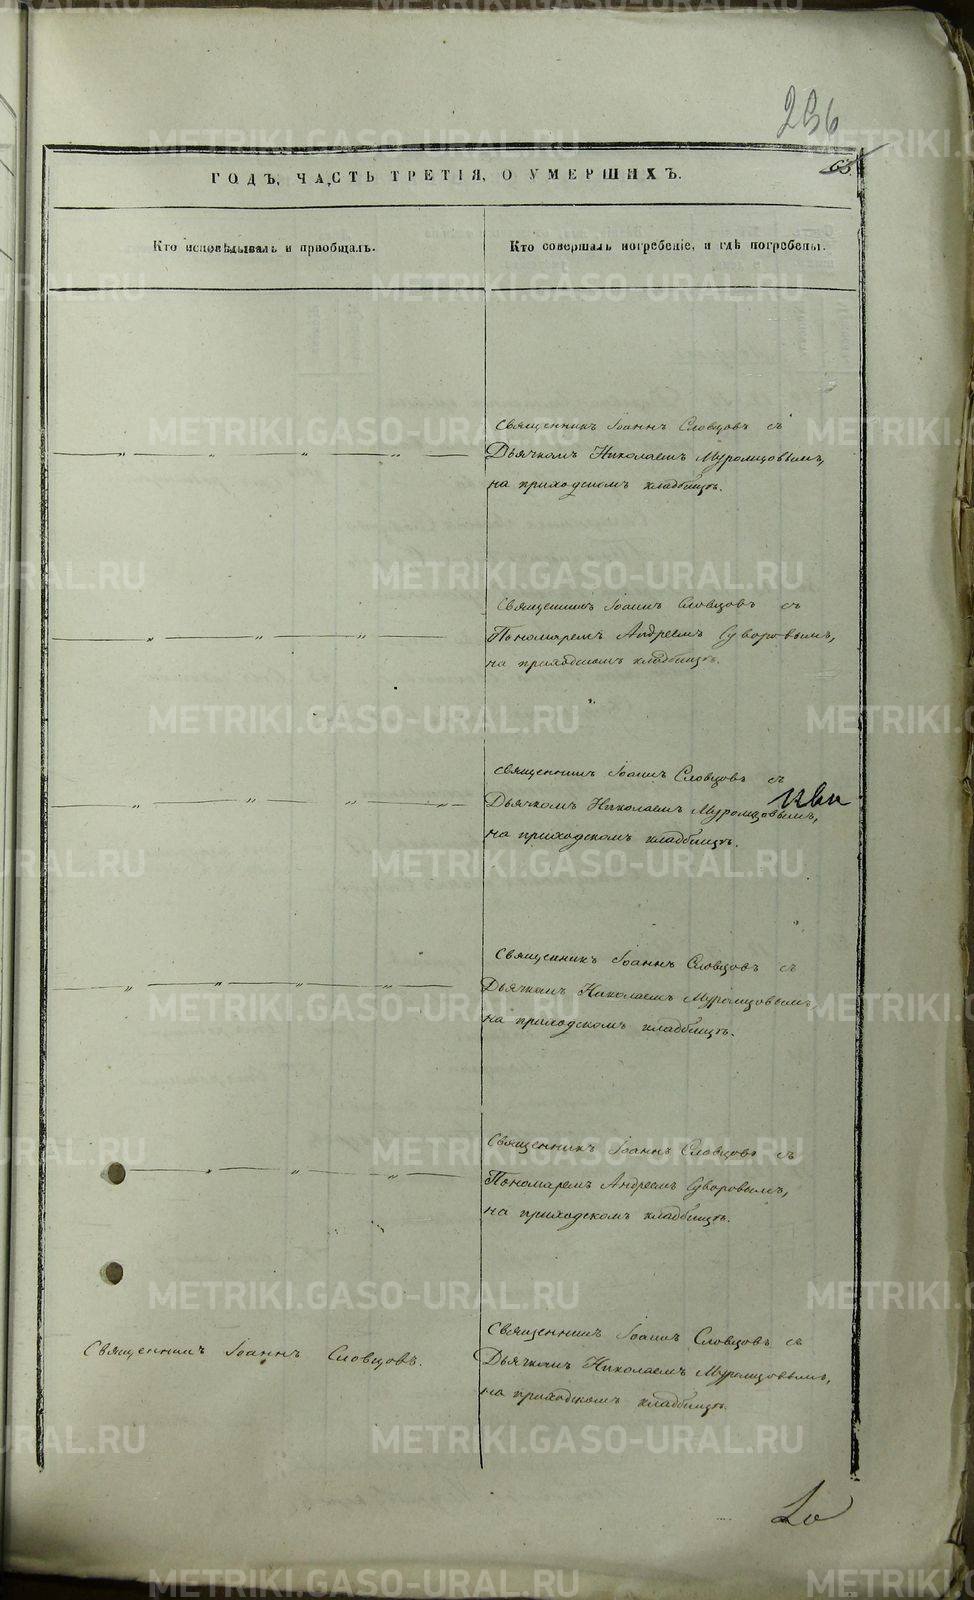 236
63.
ГОДЪ, ЧАСТЬ ТРЕТІЯ, О УМЕРШИХЪ.
Кто исповѣдывалъ и приобщалъ.
Кто совершалъ погребеніе, и гдѣ погребены.
Священникъ Іоаннъ Словцовъ съ
Дьячкомъ Николаемъ Муромцовымъ,
на приходскомъ кладбищѣ.
Священникъ Іоаннъ Словцовъ съ
Пономаремъ Андреемъ Суворовымъ,
на приходскомъ кладбищѣ.
Священникъ Іоаннъ Словцовъ съ
Дьячкомъ Николаемъ Муромцовымъ,
на приходскомъ кладбищѣ.
Священникъ Іоаннъ Словцовъ съ
Дьячкомъ Николаемъ Муромцовымъ
на приходскомъ кладбищѣ.
Священникъ Іоаннъ Словцовъ съ
Пономаремъ Андреемъ Суворовымъ,
на приходскомъ кладбищѣ.
Священникъ Іоаннъ Словцовъ.
Священникъ Іоаннъ Словцовъ съ
Дьячкомъ Николаемъ Муромцовымъ,
на приходскомъ кладбищѣ.
METRIKI.GASO-URAL.RU